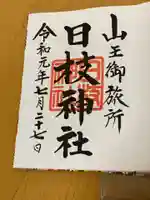 山王御旅所
日枝神社
令和元年七月二十七日